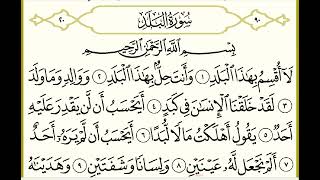 ٩٠ سُورَةُ الْبَلَدِ ٢٠
بِسْمِ ٱللَّهِ ٱلرَّحْمَٰنِ ٱلرَّحِيمِ
لَآ أُقْسِمُ بِهَٰذَا ٱلْبَلَدِ ١ وَأَنتَ حِلٌّۢ بِهَٰذَا ٱلْبَلَدِ ٢ وَوَالِدٍ وَمَا وَلَدَ
٣ لَقَدْ خَلَقْنَا ٱلْإِنسَٰنَ فِى كَبَدٍ ٤ أَيَحْسَبُ أَن لَّن يَقْدِرَ عَلَيْهِ
أَحَدٌ ٥ يَقُولُ أَهْلَكْتُ مَالًا لُّبَدًا ٦ أَيَحْسَبُ أَن لَّمْ يَرَهُۥٓ أَحَدٌ
٧ أَلَمْ نَجْعَل لَّهُۥ عَيْنَيْنِ ٨ وَلِسَانًا وَشَفَتَيْنِ ٩ وَهَدَيْنَٰهُ